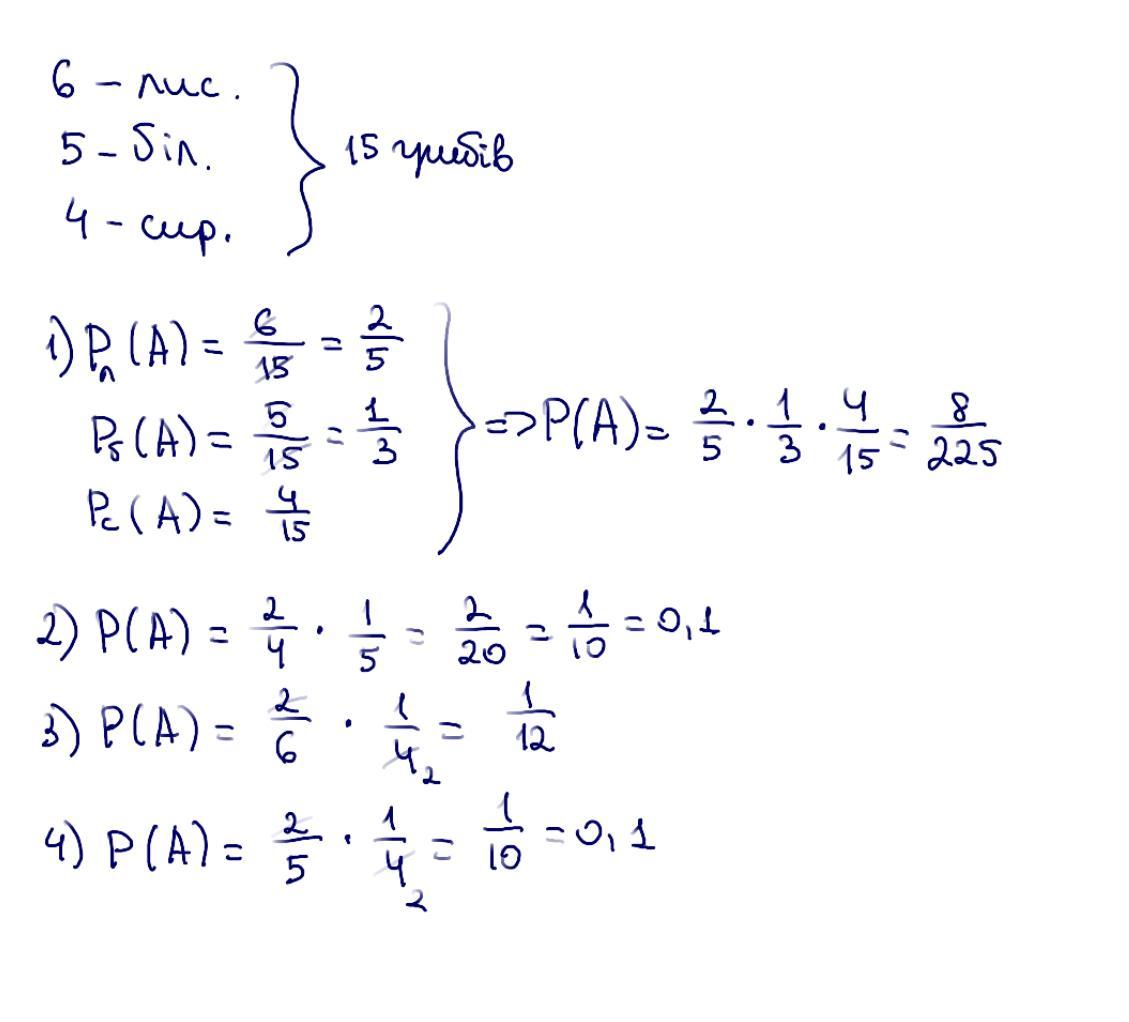 6 – лис.
5 – біл.
4 – сир.
} 15 грибів
1) Pл(A) = 6/15 = 2/5
Pб(A) = 5/15 = 1/3
Pс(A) = 4/15
} => P(A) = 2/5 · 1/3 · 4/15 = 8/225
2) P(A) = 2/4 · 1/5 = 2/20 = 1/10 = 0,1
3) P(A) = 2/6 · 1/4 2 = 1/12
4) P(A) = 2/5 · 1/4 2 = 1/10 = 0,1